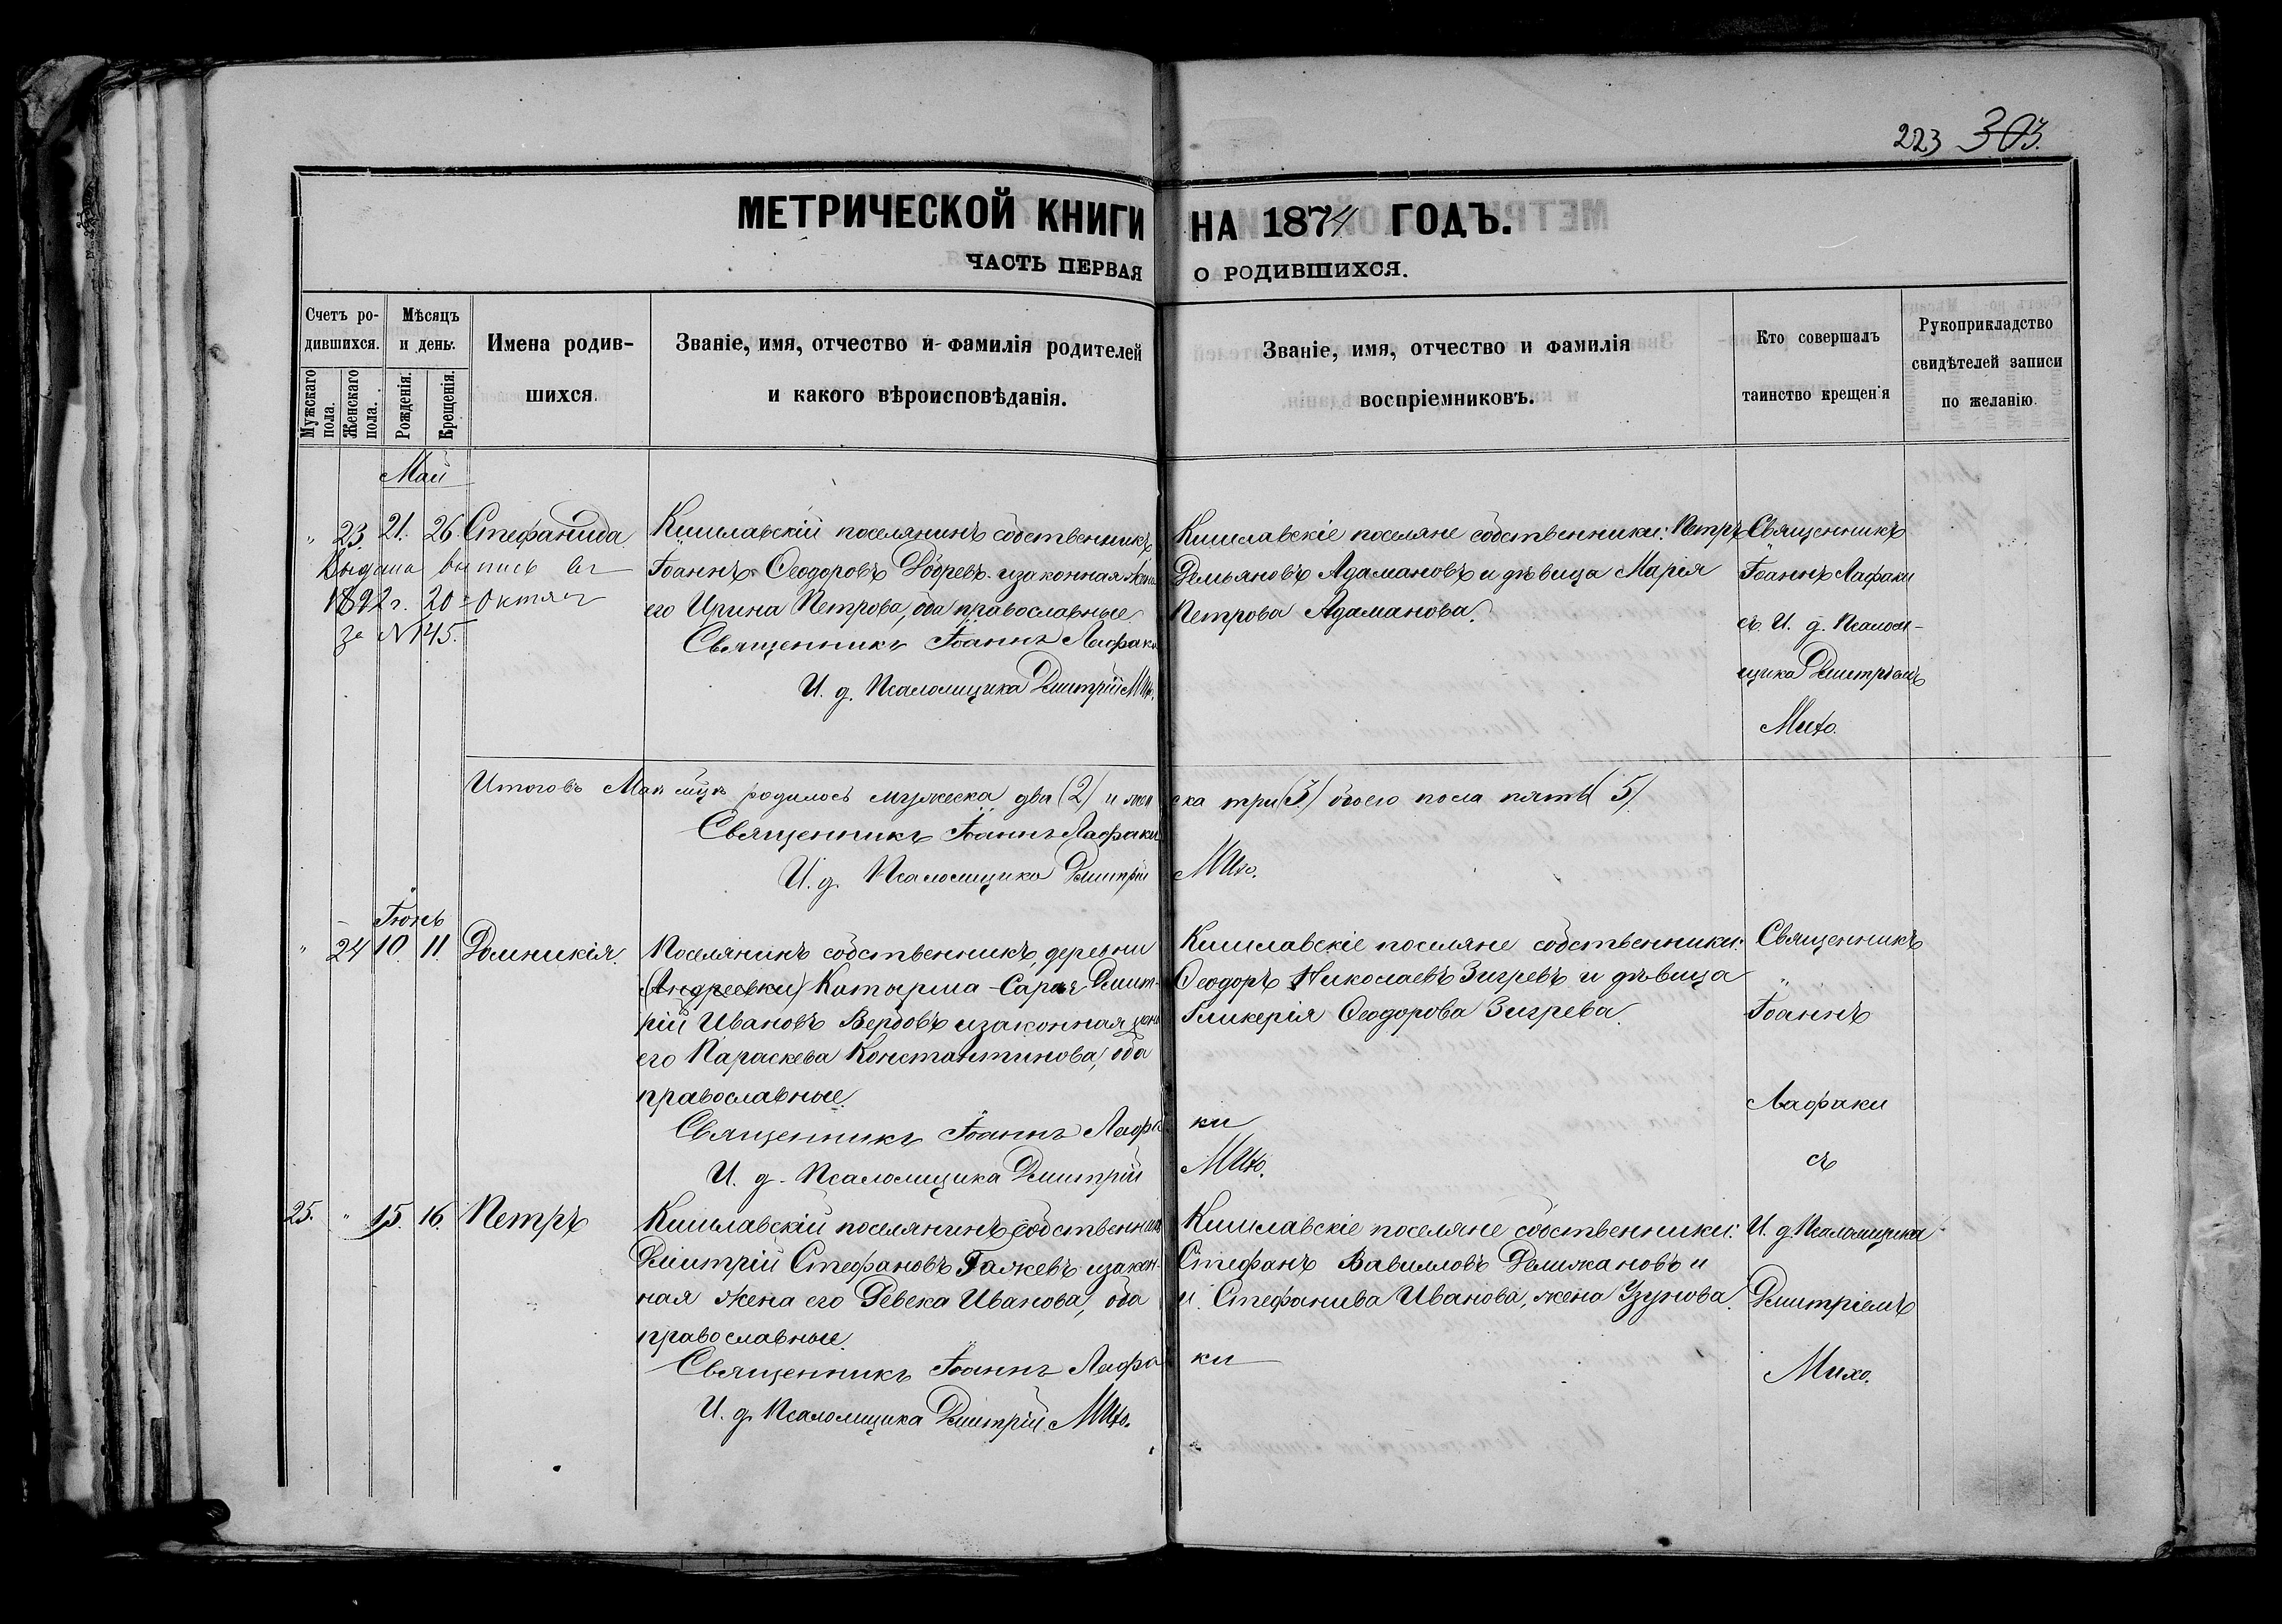 223 303.
МЕТРИЧЕСКОЙ КНИГИ НА 1874 ГОДЪ.
ЧАСТЬ ПЕРВАЯ О РОДИВШИХСЯ.
Счетъ ро-
дившихся.
Мужскаго пола.
Женскаго пола.
Мѣсяцъ
и день.
Рожденія.
Крещенія.
Имена родив-
шихся.
Званіе, имя, отчество и фамилія родителей
и какого вѣроисповѣданія.
Званіе, имя, отчество и фамилія
воспріемниковъ.
Кто совершалъ
таинство крещенія
Рукоприкладство
свидѣтелей записи
по желанію.
Май
" 23. 21. 26. Стефанида.
Выдана выпись въ
1892 г. 20 Октяб
за № 145.
Кишлавскій поселянинъ собственникъ
Іоаннъ Ѳеодоровъ Добревъ и законная жена
его Ирина Петрова, оба православные.
Священникъ Іоаннъ Лафаки
И. д. Псаломщика Дмитрій Михо.
Кишлавскіе поселяне собственники: Петръ
Демьяновъ Адамановъ и дѣвица Марія
Петрова Адаманова.
Священникъ
Іоаннъ Лафаки
съ И. д. Псалом-
щика Дмитріемъ
Михо.
Итого въ Маѣ мцѣ родилось мужеска два (2) и женска три (3) обоего пола пять (5)
Священникъ Іоаннъ Лафаки
И. д. Псаломщика Дмитрій Михо.
Іюнь
" 24 10 11. Домникія.
Поселянинъ собственникъ, деревни
(Андреевки) Катырша-Сарай Дмит-
рій Ивановъ Вербовъ и законная жена
его Параскева Константинова, оба
православные.
Священникъ Іоаннъ Лафаки
И. д. Псаломщика Дмитрій Михо.
Кишлавскіе поселяне собственники:
Ѳеодоръ Николаевъ Зигревъ и дѣвица
Гликерія Ѳеодорова Зигрева.
Священникъ
Іоаннъ
Лафаки
съ
25. " 15. 16. Петръ
Кишлавскій поселянинъ собственникъ
Дмитрій Стефановъ Галжевъ и закон-
ная жена его Ревека Иванова, оба
православные.
Священникъ Іоаннъ Лафаки
И. д. Псаломщика Дмитрій Михо.
Кишлавскіе поселяне собственники:
Стефанъ Вавиловъ Делижановъ и
и Стефанива Иванова, жена Узунова.
И. д. Псаломщика
Дмитріемъ
Михо.